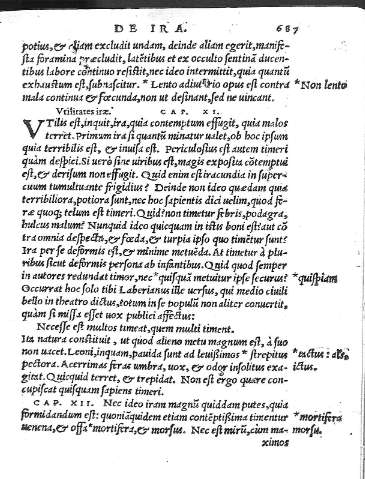 DE IRA. 687
potius, & aliam excludit undam, deinde aliam egerit, manife-
sta foramina præcludit, latẽtibus et ex occulto sentinã ducen-
tibus labore cõtinuo resistit, nec ideo intermittit, quia quantũ
exhaustum est, subnascitur. * Lento adiutorio opus est contra *Non lento
mala continua & fœcunda, non ut desinant, sed ne uincant.
Vtilitates iræ. CAP. XI.
VTilis est, inquit, ira, quia contemptum effugit, quia malos
terret. Primum ira si quantũ minatur ualet, ob hoc ipsum
quia terribilis est, & inuisa est. Periculosius est autem timeri
quàm despici. Si uerò sine uiribus est, magis exposita cõtemptui
est, & derisum non effugit. Quid enim est iracundia in super-
uacuum tumultuante frigidius? Deinde non ideo quædam quia
terribiliora, potiora sunt, nec hoc sapientis dici uelim, quod fe-
ræ quoq; telum est timeri. Quid? non timetur febris, podagra,
hulcus malum? Nunquid ideo quicquam in istis boni est? aut cõ
tra omnia despecta, & fœda, & turpia ipso quo timẽtur sunt?
Ira per se deformis est, & minime metuẽda. At timetur à plu-
ribus sicut deformis persona ab infantibus. Quid quod semper
in autores redundat timor, nec *quisquã metuitur ipse securus? *quispiam
Occurrat hoc solo tibi Laberianus ille uersus, qui medio ciuili
bello in theatro dictus, totum in se populũ non aliter conuertit,
quàm si missa esset uox publici affectus:
Necesse est multos timeat, quem multi timent.
Ita natura constituit, ut quod alieno metu magnum est, à suo
non uacet. Leoni, inquam, pauida sunt ad leuissimos * strepitus *tactus: alâs,
pectora. Acerrimas feras umbra, uox, & odor insolitus exa- ictus.
gitat. Quicquid terret, & trepidat. Non est ergo quare con-
cupiscat quisquam sapiens timeri.
CAP. XII. Nec ideo iram magnũ quiddam putes, quia
formidandum est: quoniã quidem etiam contẽptissima timentur *mortifera
uenena, & ossa* mortifera, & morsus. Nec est mirũ, cùm ma- morsu.
ximos